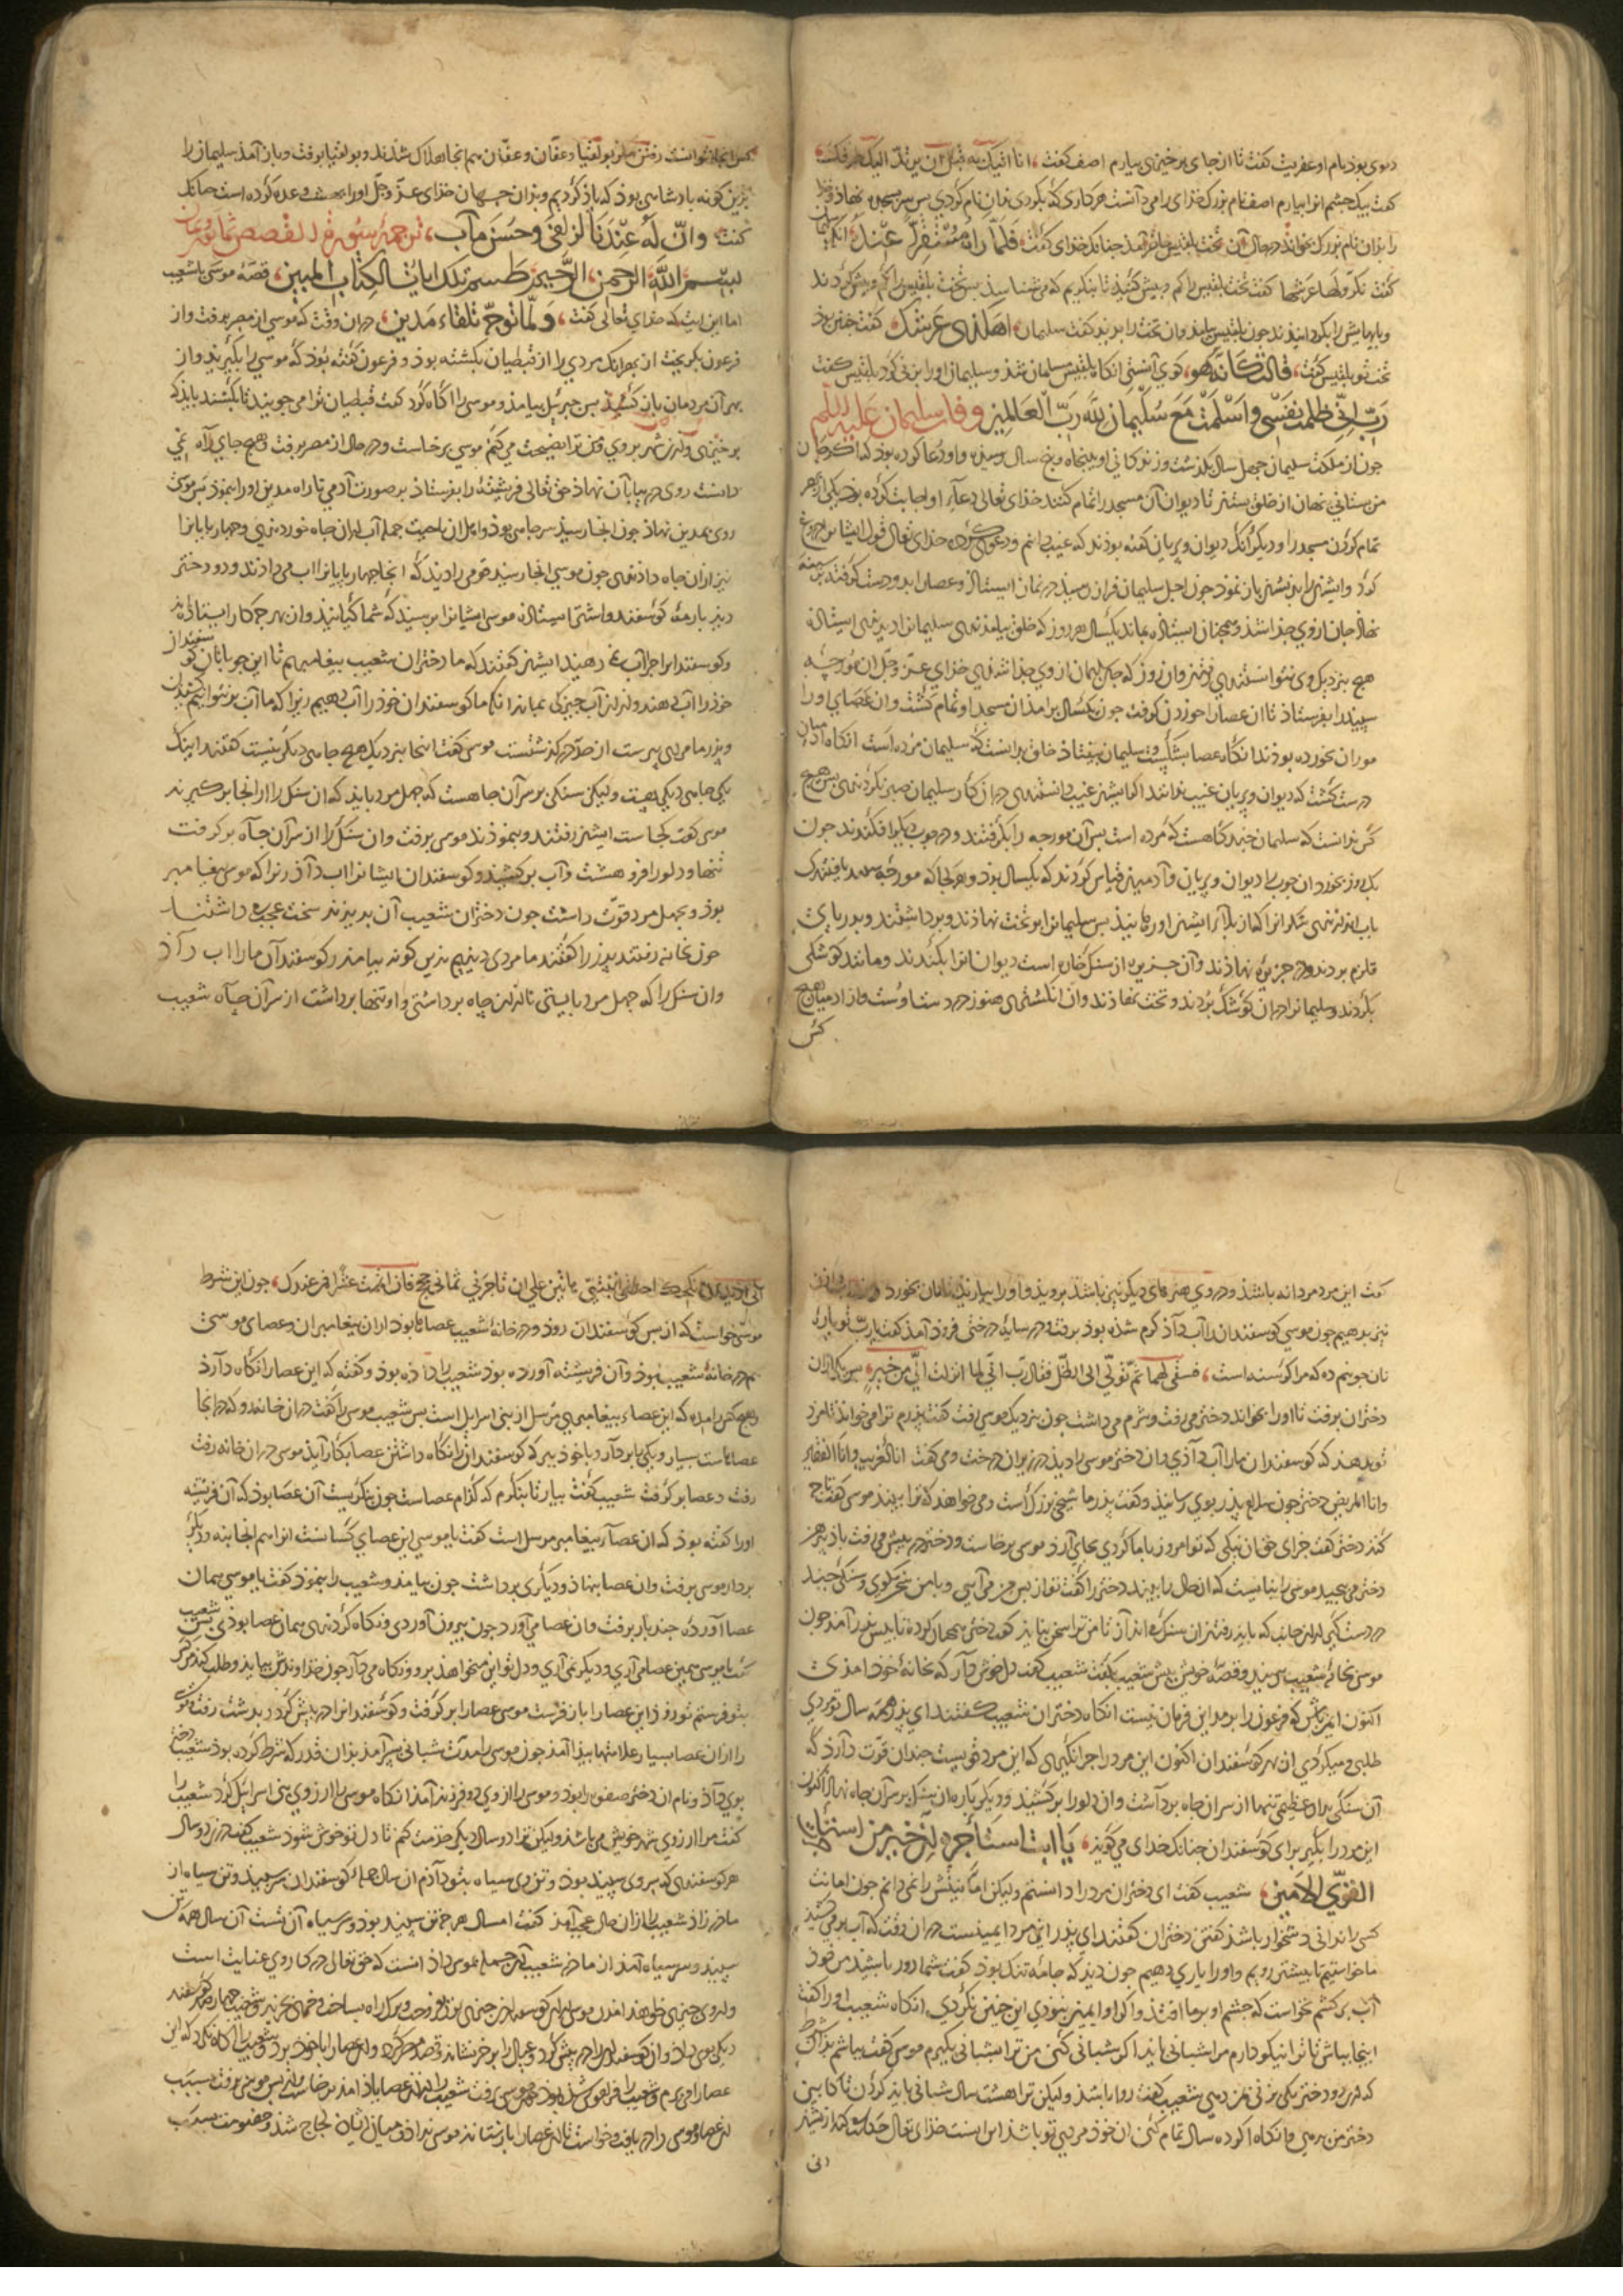 دیوی بود نام او عفریت کفت تا از جای برخیزی بیارم اصف کفت، انا اتیک به قبل ان یرتد الیک طرفک،
کفت بیک چشم انرا بیارم اصف نام بزرک خدای را می دانست هر کاری که بکردی بدان نام کردی پس سر بسجده نهاد و خدا
را بدان نام بزرک بخواند در حال آن تخت بلقیس حاضر آمد چنانک خدای کفت، فَلَمَّا رَاهُ مُسْتَقِرًّا عِنْدَهُ، انکه سلیمان
کفت نکّروا لها عرشها کفت تخت بلقیس را کم و بیش کنید تا بنکریم که می شناسد پس تخت بلقیس را کم و بیش کردند
و پایهایش را بکردانیدند چون بلقیس بیامد وان تخت را بدید کفت سلیمان، اهکذی عرشک، کفت چنین بود
تخت تو بلقیس کفت، قالت کَانَّهُ هو، کوی آنستی انکاه بلقیس مسلمان شد و سلیمان او را بزنی کرد بلقیس کفت
رَبّ اِنّی ظلمت نفسی وَاَسْلَمْتُ مَعَ سُلَیْمانَ لِلّه رَبّ الْعَالمین وفات سلیمان علیه السلم
چون از ملکت سلیمان چهل سال بکذشت و زندکانی او به پنجاه و پنج سال رسید و او دعا کرده بود کفا کر جان
من ستانی نهان از خلق ستان تا دیوان آن مسجد را تمام کنند خدای تعالی دعاء او اجابت کرده بود یکی از بهر
تمام کردن مسجد را و دیکر آنک دیوان و پریان کفته بودند که غیب دانیم و دعوی کرده خدای تعالی قول ایشان دروغ
کرد و ایشان را بدیشان باز نمود چون اجل سلیمان فراز رسید در نماز ایستاد و عصا را بدو دست کرفته بر سینه
نهاد جان از وی جدا شد و همچنان ایستاده بماند یکسال هر روز که خلق بیامدندی سلیمان را دیدندی ایستاده
هیچ نزدیک وی نتوانستندی رفتن و ان روز که جان سلیمان از وی جدا شد خدای عزّ و جلّ ان مورچه
سپید را بفرستاد تا ان عصا را خوردن کرفت چون یکسال برامد ان مسجد او تمام کشت وان عصای او را
موران بخورده بودند انکاه عصا بشکست و سلیمان بیفتاد خلق بدانست که سلیمان مرده است انکاه آدمیان
درست کشت که دیوان و پریان غیب ندانند اکر ایشان غیب دانستندی در ان کار سلیمان صبر نکردندی پس هیچ
کس ندانست که سلیمان چند کاهست که مرده است پس آن مورچه را بکرفتند و در چوب دیکر افکندند چون
یک روز بخورد ان چوب را دیوان و پریان و آدمیان قیاس کردند که یکسال بود و هر کجا که مورچه سپید یافتندی
باب اندر نهی شکر انرا که از بلاء ایشان او رهانید پس سلیمان را بر تخت نهادند و برداشتند و بدریای
قلزم بردند و در جزیره نهادند وآن جزیره از سنک خاره است دیوان انرا بکندند و مانند کوشکی
بکردند و سلیمان را در ان کوشک بردند و تخت بنهادند وان انکشتری هنوز در دست اوست واز ادمیان هیچ
کس
کس انجا نتوانست رفتن مکر بولقیا و عفان و عفان هم انجا هلاک شدند و بولقیا برفت و باز آمد سلیمان را
بزین کونه بادشاهی بود که یاذ کردیم و بدان جهان خدای عزّ وجلّ او را بهشت وعده کرده است چنانک
کفت، وَانّ لَهُ عِنْدَنَا لَزُلفی وَحُسْنَ مَآب، ترجمهٔ سورة القصص ثمانون وثمان
بِسْمِ اللّهِ الرَّحمنِ الرَّحیمِ طسم تِلکَ ایاتُ الکتابِ المبین، قصّهٔ موسی با شعیب
اما این ایت که خدای تعالی کفت، وَلَمّا تَوَجّه تِلْقَاءَ مَدین، در ان وقت که موسی از مصر برفت و از
فرعون بکریخت از بهر انک مردی را از قبطیان بکشته بوذ و فرعون کفته بوذ که موسی را بکیرید و از
بهر آن مردمان باز کشید پس جبرئیل بیامد و موسی را اکاه کرد کفت قبطیان ترا می جویند تا بکشند باید که
برخیزی و ازین شهر بروی و من ترا نصیحت می کنم موسی برخاست و در حال از مصر برفت و هیچ جای راه نمی
دانست روی در بیابان نهاذ حق تعالی فریشتهٔ را بفرستاذ بر صورت آدمی تا راه مدین او را بنموذ پس موسی
روی بمدین نهاذ چون انجا رسید سر چاهی بوذ و اهل ان ناحیت جمله آب از ان چاه خوردندی و چهار پایان را
نیز ازان چاه داذندی چون موسی انجا رسید قومی را دید که انجا چهار پایان را اب می دادند و دو دختر
دید بارمهٔ کوسفند و اشتر ایستاده موسی ایشان را پرسید که شما کیانید وان بهر چه کار ایستاده اید
و کوسفندان را چرا آب نمی دهید ایشان کفتند که ما دختران شعیب پیغامبریم تا این چوپانان کوسفندان
خوذ را آب دهند و از ان آب چیزکی بماند انکه ما کوسفندان خوذ را آب دهیم زیرا که ما آب نتوانیم کشیدن
و پدر ما مردی پیرست از حدّ در کذشتست موسی کفت اینجا نزدیک هیچ چاهی دیکر نیست کفتند اینک
یکی چاهی دیکر هست ولیکن سنکی بر سر آن چاهست که چهل مرد باید که ان سنک را از انجا بر کیرند
موسی کفت کجاست ایشان رفتند و بنموذند موسی برفت وان سنک را از سر آن چاه بر کرفت
تنها و دلو را فرو هشت و آب بر کشید و کوسفندان ایشان را اب داذ زیرا که موسی پیغامبر
بوذ و بچهل مرد قوّت داشت چون دختران شعیب آن بدیدند سخت عجب داشتند
چون بخانه رفتند پدر را کفتند ما مردی دیدیم بدین کونه بیامد و کوسفندان ما را اب داذ
وان سنک را که چهل مرد بایستی تا از ان چاه برداشتی و او تنها برداشت از سر آن چاه شعیب
کفت این مرد مردانه باشد و در وی هنرهای دیکر نیز باشد بروید و او را بیارید تا نان بخورد
نیز بدهیم چون موسی کوسفندان را آب داذ کرم شده بوذ برفت و در سایهٔ درختی فروذ آمد کفت یا ربّ تو پارهٔ
نان جوینم ده که مرا کرسنه است، فسقی لهما ثمّ تولّی الی الظلّ فقال ربّ انّی لما انزلت الیّ من خیرٍ، پس یکی ازان
دختران برفت تا او را بخواند دختر می رفت و شرم می داشت چون نزدیک موسی رفت کفت پدرم ترا می خواند تا مزد
تو بدهد که کوسفندان ما را آب داذی وان دختر موسی را دید در زیر ان درخت و می کفت انا الغریب وانا الفقیر
وانا المریض دختر چون سلام پدر بوی رسانید و کفت پدر ما شیخی بزرک است و می خواهد که ترا ببیند موسی کفت تا چه
کند دختر کفت جزای حق ان نیکی که تو امروز با ما کردی بجای آرد موسی برخاست و دختر در پیش می رفت باد
دختر می پیچید موسی را نبایست که ان حال را بیند دختر را کفت تو از پس من می آی و با من سخن مکوی و سنکی چند
در دست کیر از ان جانب که باید رفتن ان سنک می انداز تا من ترا سخن نباید کفت دختر همچنان کرد تا بدیشان در آمد چون
موسی بخانهٔ شعیب رسید و قصّهٔ خویش پیش شعیب بکفت شعیب کفت دل خوش دار که بخانهٔ خود امذی
اکنون ایمن باش که فرعون را بر ما این فرمان نیست انکاه دختران شعیب کفتند ای پدر همه سال تو مردی
طلب می کردی از بهر کوسفندان اکنون این مرد را چرا نکیری که این مرد قویست چندان قوّت دارد که
آن سنکی بدان عظیمی تنها از سر ان چاه برداشت وان دلو را بر کشید و دیکر باره ان سنک بر سر آن چاه نهاد اکنون
این مرد را بکیر برای کوسفندان چنانک خدای می کوید، یَا ابت استَأجِره اِنّ خیر من استاجرت
القویّ الامین، شعیب کفت ای دختران مرد را دانستم ولیکن امینیش را نمی دانم چون امانت
کسی را ندانی دشخوار باشد کفتن دختران کفتند ای پدر این مرد امینست در ان وقت که آب بر می کشید
ما خواستیم تا پیشتر رویم و او را یاری دهیم چون دید که جامه تنک بود کفت شما دور باشید من خود
آب بر کشم نخواست که چشم او بر ما افتد و اکر او ایمین نبودی این چنین نکردی انکاه شعیب او را کفت
اینجا بباش تا ترا نیکو دارم مرا شبانی باید اکر شبانی کنی من ترا بشبانی بکیرم موسی کفت بباشم بذان شرط
که ازین دو دختر یکی بزنی بمن دهی شعیب کفت روا باشد ولیکن ترا هشت سال شبانی باید کردن تا کابین
دختر من بدهی وانکاه اکر ده سال تمام کنی ان خود مردی تو باشد این است خدای تعالی حکایت کرد ازیشان
انی
انی ارید ان انکحک احدی ابنتیّ هاتین علی ان تاجرنی ثمانی حجج فان اتممت عشرًا فمن عندک، چون این شرط
موسی خواست که از پس کوسفندان روذ و در خانهٔ شعیب عصاها بوذ ازان پیغامبران وعصای موسی
هم در خانهٔ شعیب بوذ وآن فریشته آورده بوذ شعیب را داذه بوذ و کفته که این عصا را نکاه دار
وهیچ کس را مده که این عصاء پیغامبری مرسل از بنی اسرایل است پس شعیب موسی را کفت در ان خانه رو که در انجا
عصاهاست بسیار و یکی بردار و با خود ببر که کوسفندان را نکاه داشتن عصا بکار آید موسی در ان خانه رفت
رفت و عصا بر کرفت شعیب کفت بیار تا بنکرم که کدام عصاست چون بنکریست آن عصا بوذ که آن فریشته
او را کفته بوذ که ان عصاء پیغامبر مرسل است کفت یا موسی این عصای کسانست انرا هم انجا بنه و دیکر
بردار موسی برفت وان عصا بنهاذ و دیکری برداشت چون بیامد و شعیب را بنموذ کفت یا موسی همان
عصا آوردهٔ چند بار برفت وان عصا می آورد چون بیرون آوردی و نکاه کردندی همان عصا بوذی پس شعیب
کفت یا موسی همین عصا می آری و دیکر نمی آری و دل تو این می خواهد برو و نکاه می دار چون خداوندش بیاید و طلب کند من کس
بتو فرستم تو زوذ این عصا را باز فرست موسی عصا را بر کرفت و کوسفندان را در پیش کرد و بدشت رفت و موسی
را ازان عصا بسیار علامتها پیذا آمد چون موسی را مدّت شبانی سر آمد بذان قدر که شرط کرده بوذ شعیب دختر
بوی داذ و نام ان دختر صفورا بوذ و موسی را از وی دو فرزند آمد انکاه موسی را ارزوی بنی اسرایل کرد شعیب را
کفت مرا ارزوی شهر خویش می باشد ولیکن ترا دو سال دیکر خدمت کنم تا دل تو خوش شود شعیب کفت درین دو سال
هر کوسفندی که بروی سپید بوذ و تن وی سیاه بتو دادم ان سال همه کوسفندان سر سپید و تن سیاه از
مادر زاد شعیب را ازان حال عجب آمد کفت امسال هر چه تن سپید بوذ و سر سیاه آن تست آن سال همه تن
سپید و سر سیاه آمد از مادر شعیب آن جمله بموسی داذ دانست که حق تعالی در کار وی عنایت است